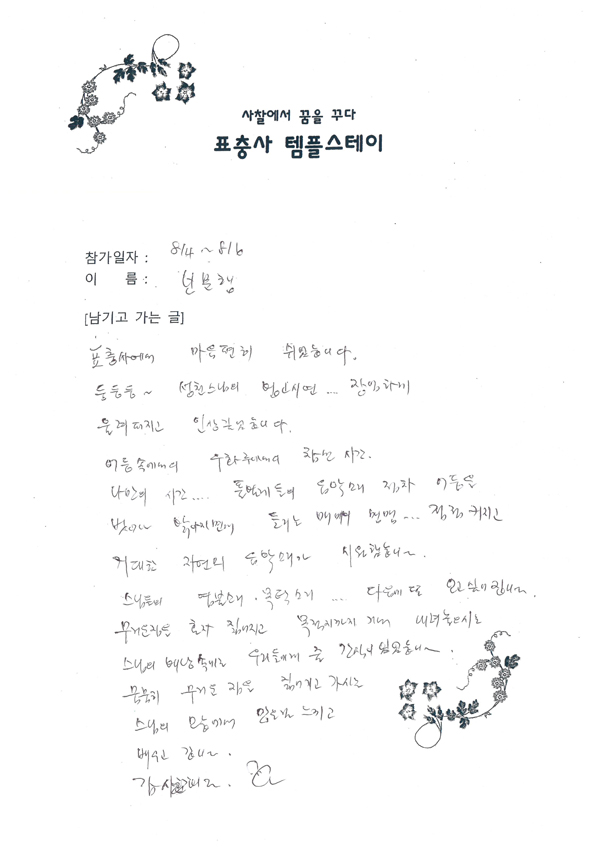 사찰에서 꿈을 꾸다
표충사 템플스테이
참가일자 : 8/4 ~ 8/6
이 름 :
[남기고 가는 글]
표충사에서 마음편히 쉬었습니다.
둥둥둥~ 성천스님의 법고시연 .... 장엄하게
울려퍼지고 인상깊었습니다.
어둠속에서의 참선 시간.
나만의 시간.... 풀벌레들의 음악소리 점차 어둠을
벗어나 밝아지면서 들리는 매미의 .... 점점 커지고
거대한 자연의 음악소리가 시원합니다.
스님들의 염불소리 · 목탁소리 .... 다음에 또 오고싶어집니다.
무거운짐을 혼자 짊어지고 목적지까지 가셔서 내려놓으시는
스님의 배낭속에는 우리들에게 줄 간식이 있었습니다.
묵묵히 무거운 짐을 짊어지고 가시는
스님의 모습에서 느끼고
배우고 갑니다.
감사합니다.